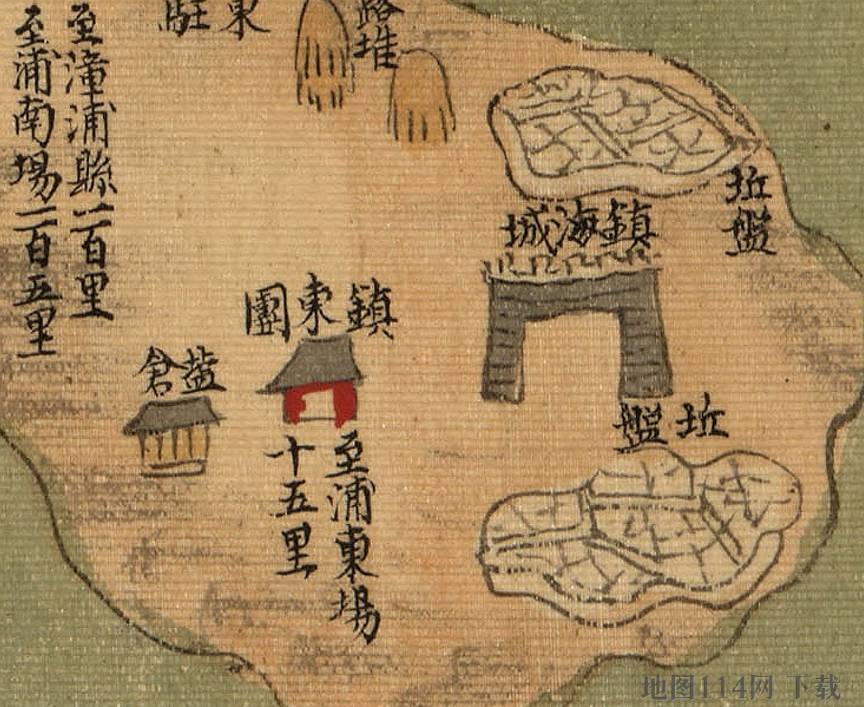 東駐
路堆
至漳浦縣二百里
至浦南場二百五里
坵盤
鎮海城
鎮東團
盐倉
坵盤
至浦東場
十五里
地图114网 下载